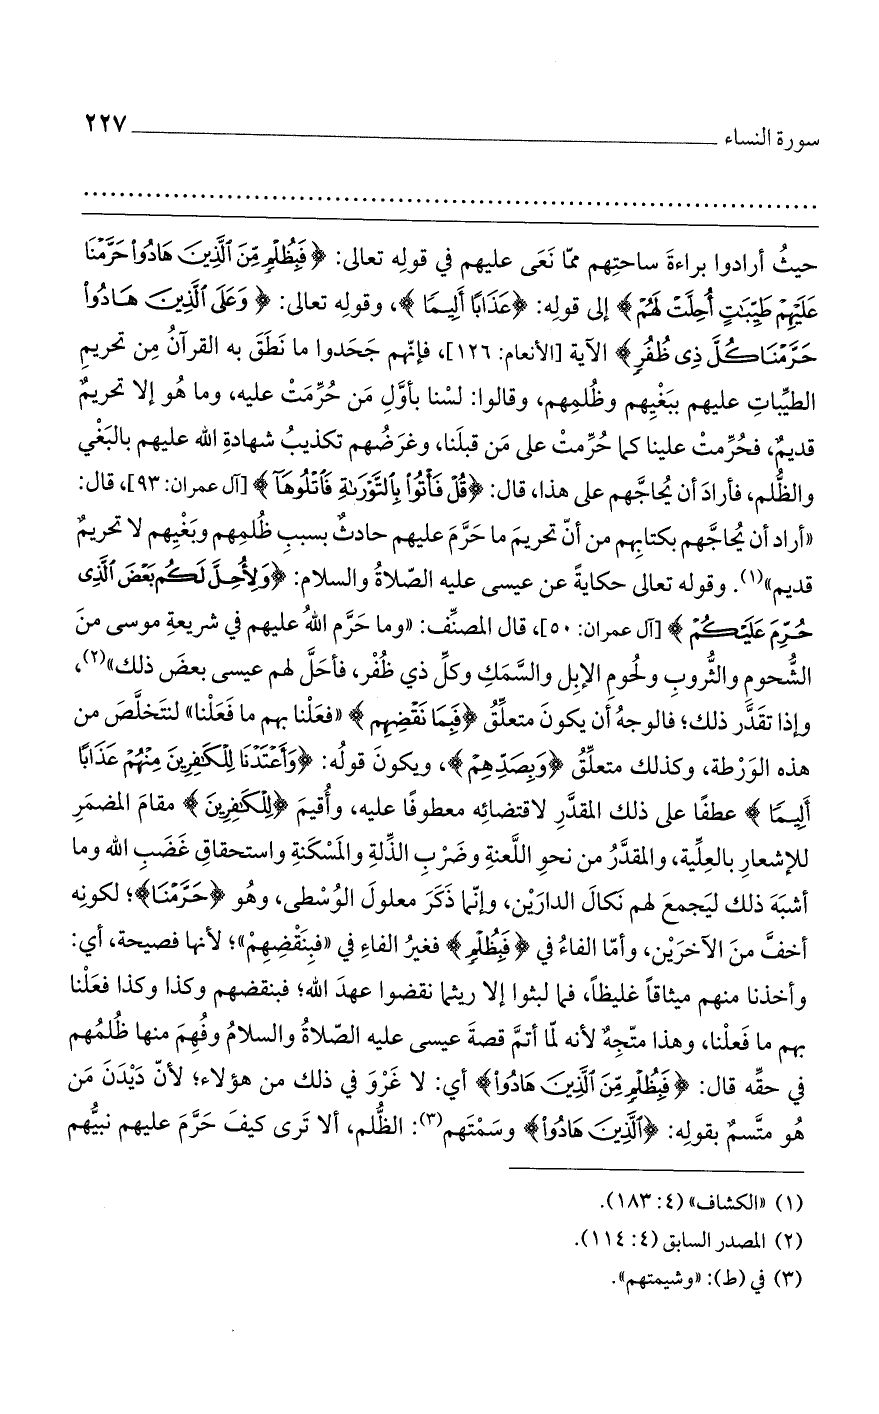 سورة النساء ــــــــــــــــــــ ٢٢٧
........................................................................
حيثُ أرادوا براءةَ ساحتِهم ممّا نَعَى عليهم في قولِه تعالى: ﴿فَبِظُلْمٍ مِّنَ ٱلَّذِينَ هَادُوا۟ حَرَّمْنَا
عَلَيْهِمْ طَيِّبَٰتٍ أُحِلَّتْ لَهُمْ﴾ إلى قولِه: ﴿عَذَابًا أَلِيمًا﴾، وقولِه تعالى: ﴿وَعَلَى ٱلَّذِينَ هَادُوا۟
حَرَّمْنَا كُلَّ ذِى ظُفُرٍ﴾ الآية [الأنعام: ١٢٦]، فإنّهم جَحَدوا ما نَطَقَ به القرآنُ مِن تحريمِ
الطيِّباتِ عليهم ببَغْيِهم وظُلمِهم، وقالوا: لسْنا بأوَّلِ مَن حُرِّمَتْ عليه، وما هُو إلا تحريمٌ
قديمٌ، فحُرِّمتْ علينا كما حُرِّمتْ على مَن قبلَنا، وغرَضُهم تكذيبُ شهادةِ الله عليهم بالبَغْي
والظُّلم، فأرادَ أن يُحاجَّهم على هذا، قال: ﴿قُلْ فَأْتُوا۟ بِٱلتَّوْرَىٰةِ فَٱتْلُوهَآ﴾ [آل عمران: ٩٣]، قال:
«أراد أن يُحاجَّهم بكتابِهم من أنّ تحريمَ ما حَرَّمَ عليهم حادثٌ بسببِ ظُلمِهم وبَغْيِهم لا تحريمٌ
قديم»(١). وقوله تعالى حكايةً عن عيسى عليه الصّلاةُ والسلام: ﴿وَلِأُحِلَّ لَكُم بَعْضَ ٱلَّذِى
حُرِّمَ عَلَيْكُمْ﴾ [آل عمران: ٥٠]، قال المصنِّف: «وما حَرَّم اللهُ عليهم في شريعةِ موسى منَ
الشُّحوم والثُّروبِ ولحُومِ الإبلِ والسَّمَكِ وكلِّ ذي ظُفْر، فأحَلَّ لهم عيسى بعضَ ذلك»(٢)،
وإذا تقَدَّر ذلك؛ فالوجهُ أن يكونَ متعلِّقُ ﴿فَبِمَا نَقْضِهِم﴾ «فعَلْنا بهم ما فَعَلْنا» لنَتَخلَّصَ من
هذه الوَرْطة، وكذلك متعلِّقُ ﴿وَبِصَدِّهِمْ﴾، ويكونَ قولُه: ﴿وَأَعْتَدْنَا لِلْكَٰفِرِينَ مِنْهُمْ عَذَابًا
أَلِيمًا﴾ عطفًا على ذلك المقدَّرِ لاقتضائه معطوفًا عليه، وأُقيمَ ﴿لِلْكَٰفِرِينَ﴾ مقامَ المضمَرِ
للإشعارِ بالعِلِّية، والمقدَّرُ من نحوِ اللَّعنةِ وضَرْبِ الذِّلةِ والمَسْكَنةِ واستحقاقِ غَضَبِ الله وما
أشبَهَ ذلك ليَجمعَ لهم نَكالَ الدارَيْن، وإنّما ذَكَرَ معلولَ الوُسْطى، وهُو ﴿حَرَّمْنَا﴾؛ لكونِه
أخفَّ منَ الآخرَيْن، وأمّا الفاءُ في ﴿فَبِظُلْمٍ﴾ فغيرُ الفاءِ في «فبِنَقْضِهِمْ»؛ لأنها فصيحة، أي:
وأخذنا منهم ميثاقاً غليظاً، فما لبثوا إلا ريثما نقضوا عهدَ الله؛ فبنقضهم وكذا وكذا فعَلْنا
بهم ما فَعلْنا، وهذا متّجِهٌ لأنه لمّا أتمَّ قصةَ عيسى عليه الصّلاةُ والسلامُ وفُهِمَ منها ظُلمُهم
في حقِّه قال: ﴿فَبِظُلْمٍ مِّنَ ٱلَّذِينَ هَادُوا۟﴾ أي: لا غَرْوَ في ذلك من هؤلاء؛ لأنّ دَيْدَنَ مَن
هُو متَّسمٌ بقولِه: ﴿ٱلَّذِينَ هَادُوا۟﴾ وسَمْتَهم(٣): الظُّلم، ألا تَرى كيفَ حَرَّمَ عليهم نبيُّهم
(١) «الكشاف» (٤: ١٨٣).
(٢) المصدر السابق (٤: ١١٤).
(٣) في (ط): «وشيمتهم».